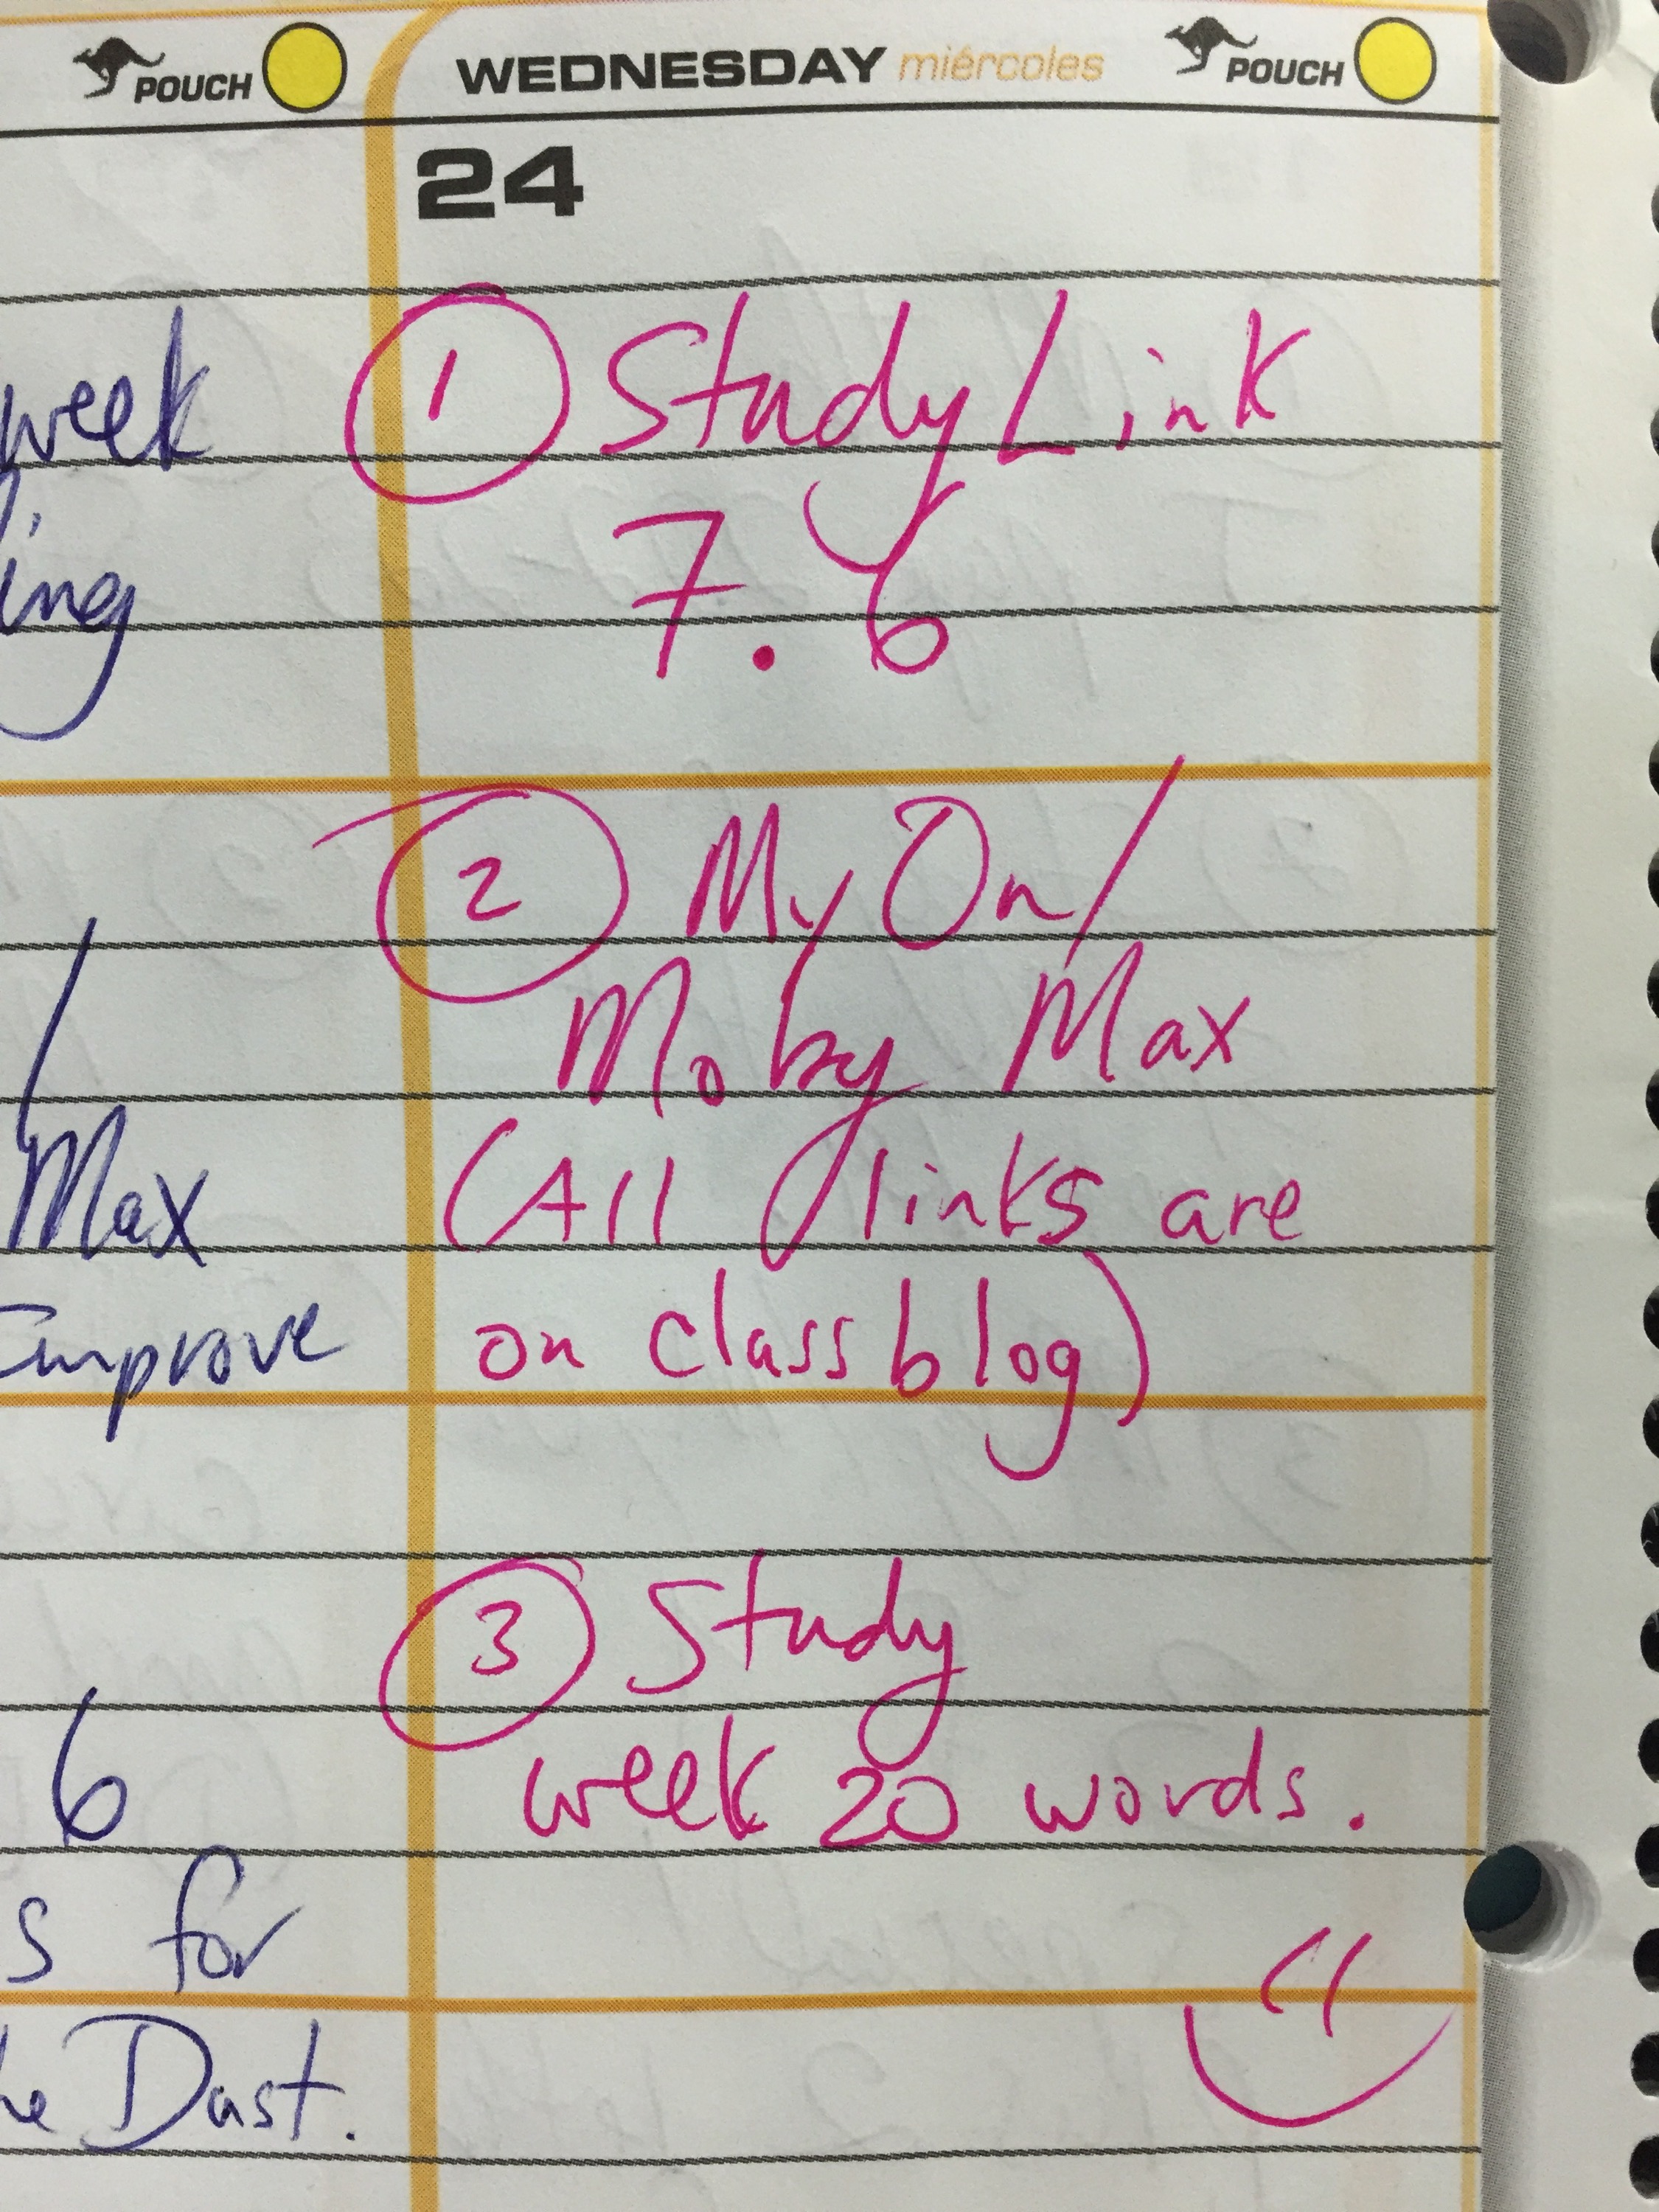 POUCH
WEDNESDAY miércoles POUCH
24
week
ing
Max
Improve
6
s for
Dust.
1 Study Link
7.6
2 My On/
Moby Max
(All links are
on class blog)
3 Study
week 20 words.